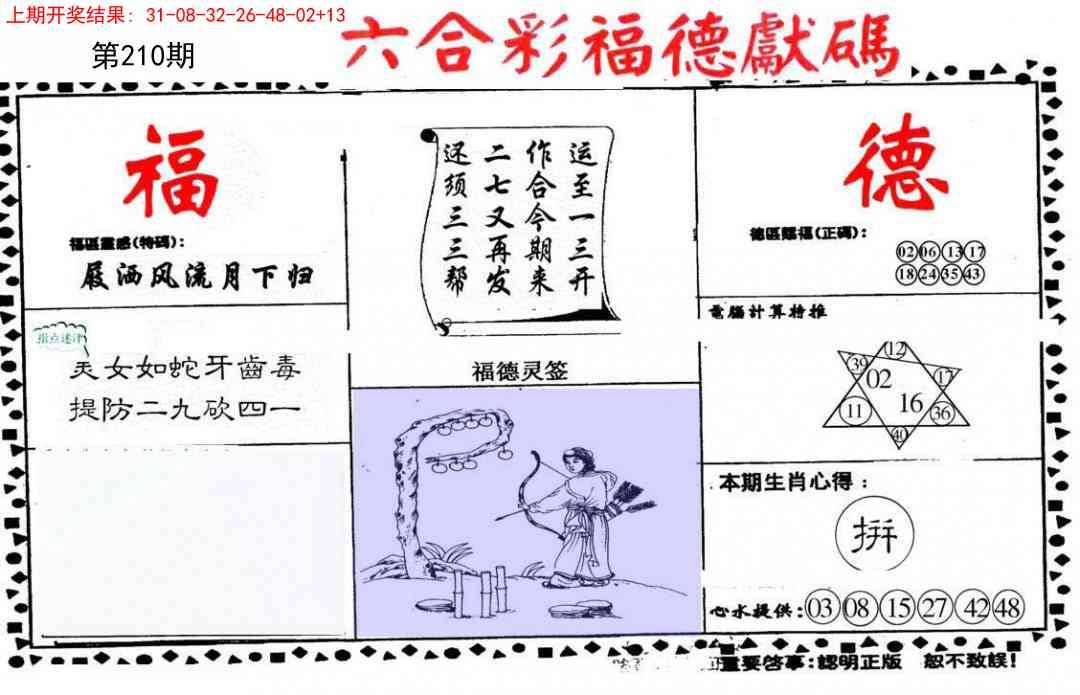 上期开奖结果：31-08-32-26-48-02+13
第210期
六合彩福德獻碼
福
福區靈感(特碼)：
屐洒风流月下归
指点迷津
美女如蛇牙齒毒
提防二九砍四一
运至一三开
作合今期来
二七又再发
还须三三帮
福德灵签
德
德區賜福(正碼)：
02 06 13 17
18 24 35 43
電腦計算特推
12
39 02 17
11 16 36
40
本期生肖心得：
拼
心水提供：03 08 15 27 42 48
重要啓事：認明正版 恕不致誤！